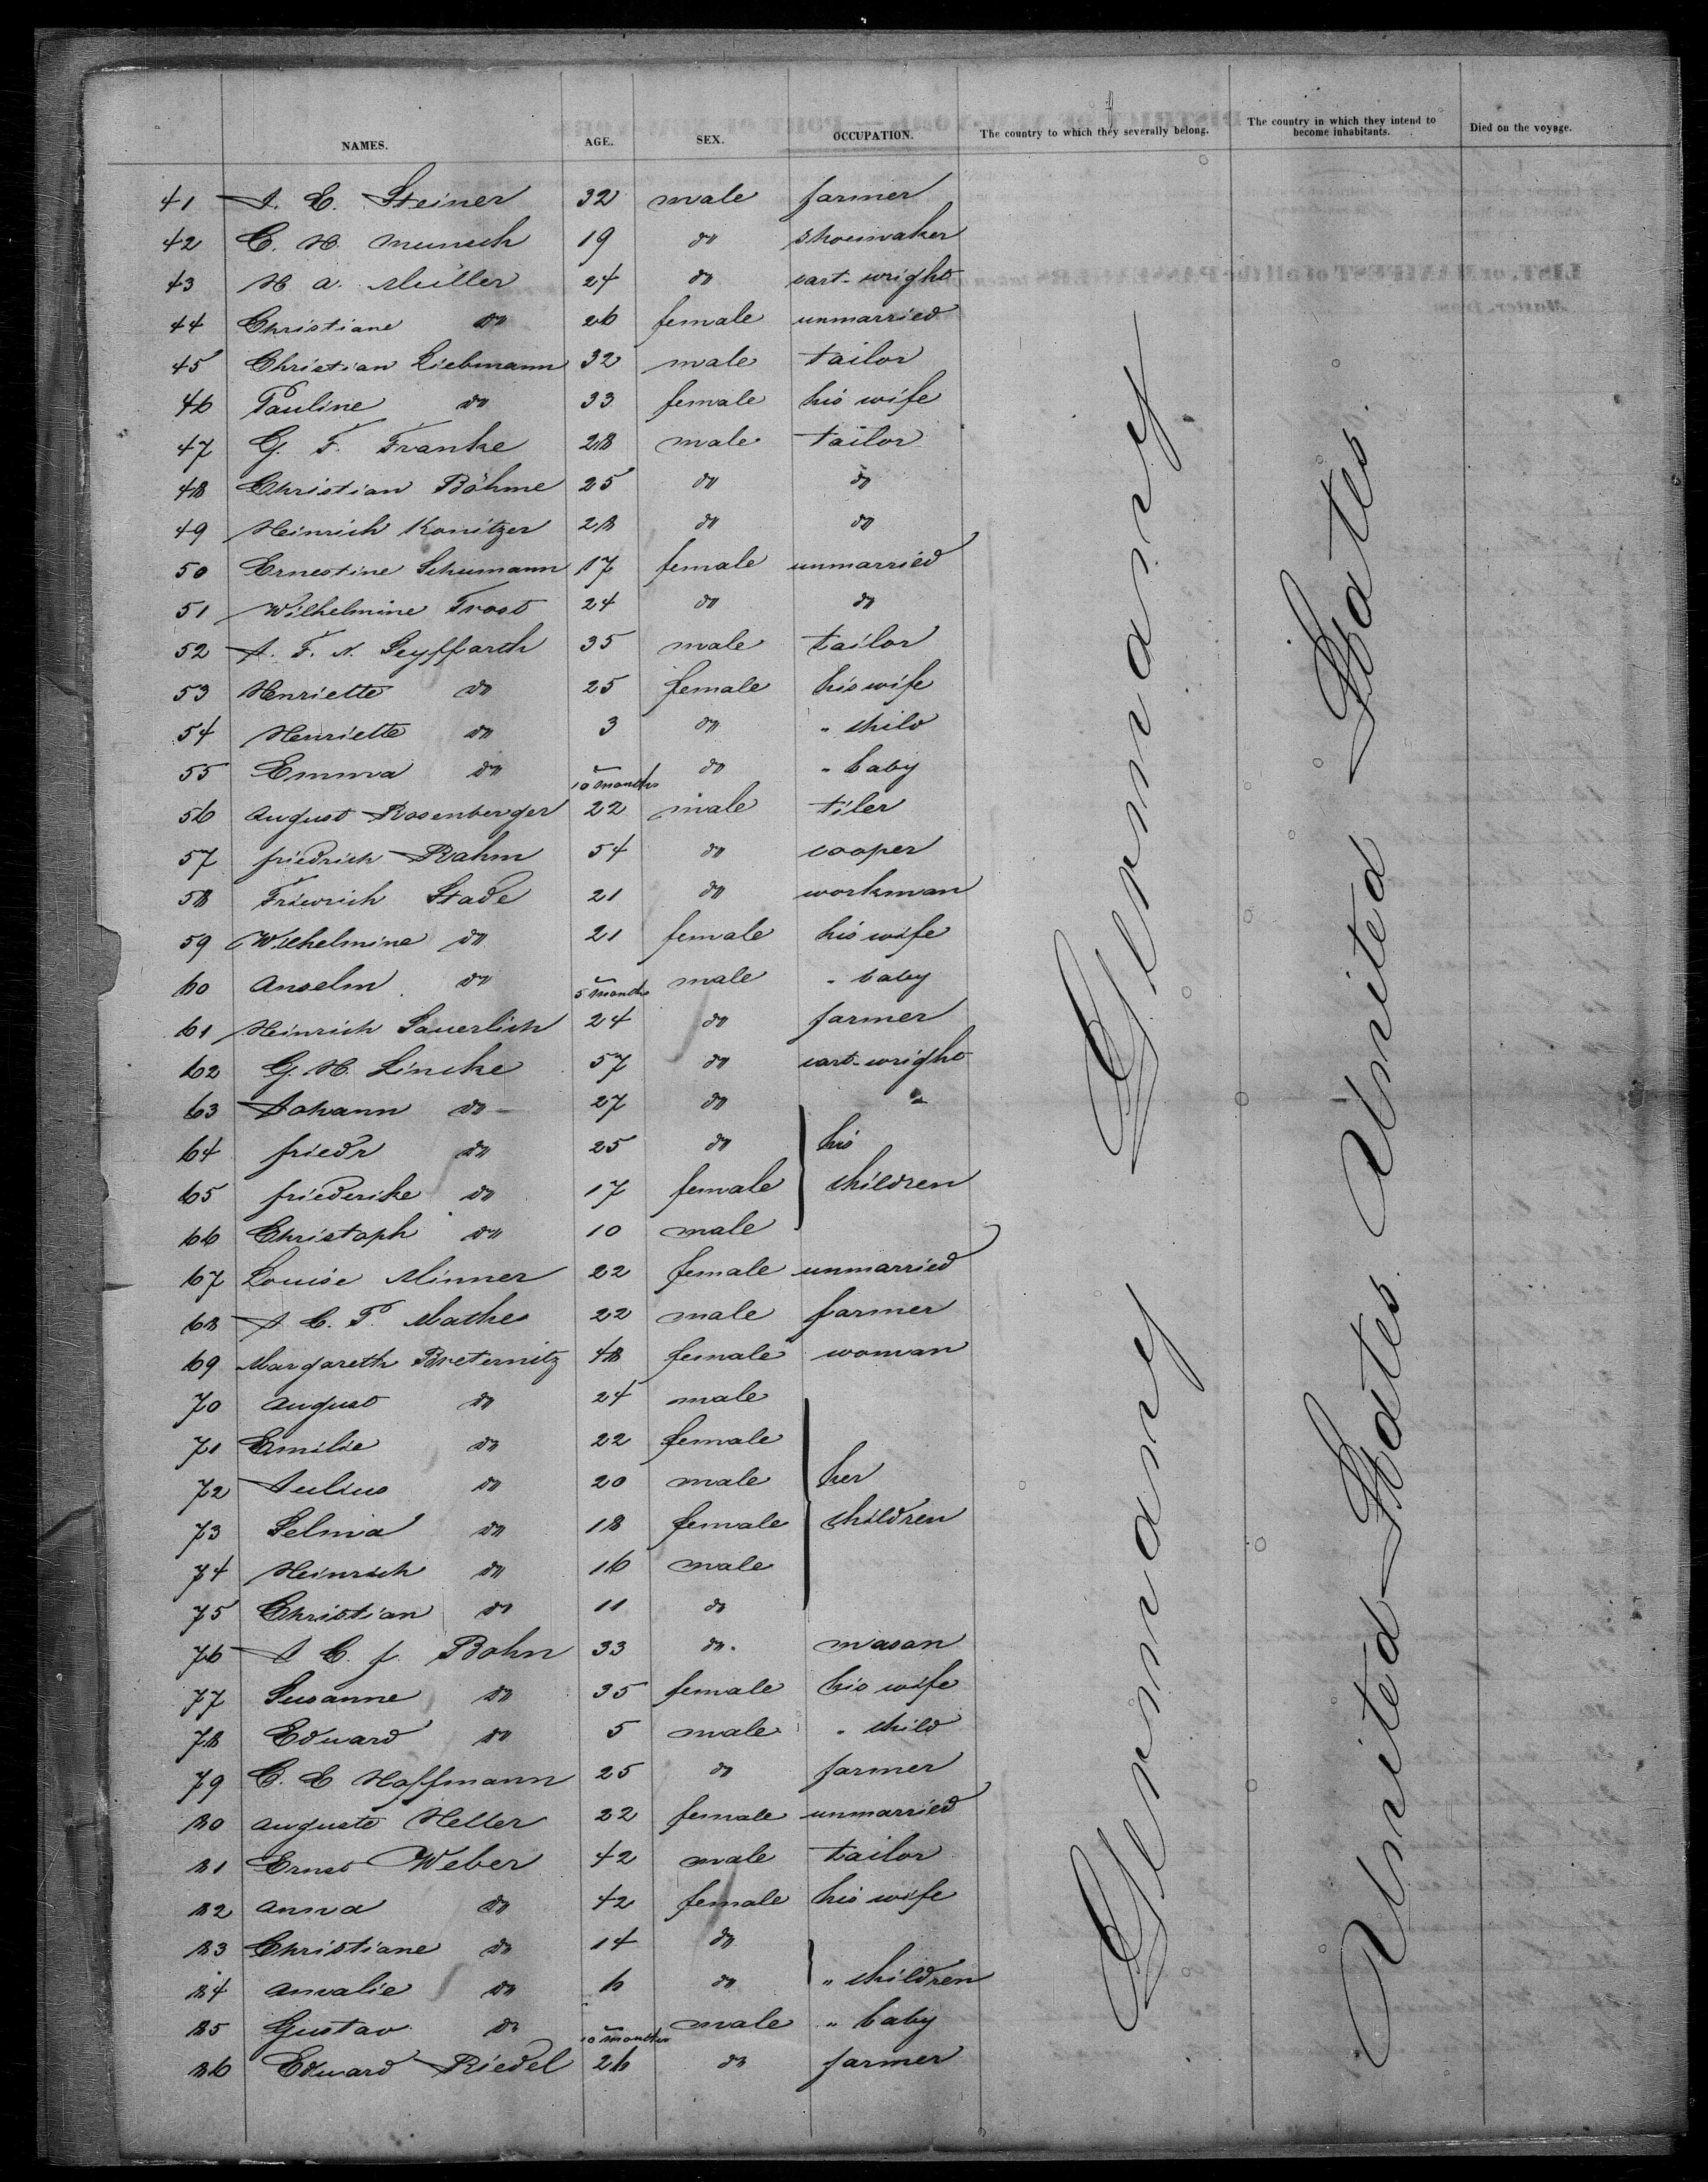 NAMES. AGE. SEX. OCCUPATION. The country to which they severally belong. The country in which they intend to become inhabitants. Died on the voyage.
41 J. C. Steiner 32 male farmer
42 C. H. Munsch 19 do shoemaker
43 H. A. Müller 24 do cart-wright
44 Christiane do 26 female unmarried
45 Christian Liebmann 32 male tailor
46 Pauline do 33 female his wife
47 G. F. Franke 28 male tailor
48 Christian Böhme 25 do do
49 Heinrich Konitzer 28 do do
50 Ernestine Schumann 17 female unmarried
51 Wilhelmine Trost 24 do do
52 J. F. N. Seyffarth 35 male tailor
53 Henriette do 25 female his wife
54 Henriette do 3 do " child
55 Emma do 10 months do " baby
56 August Rosenberger 22 male tiler
57 Friedrich Rahm 54 do cooper
58 Stade 21 do workman
59 Wilhelmine do 21 female his wife
60 Anselm do 5 months male " baby
61 Heinrich Sauerlich 24 do farmer
62 G. H. Lincke 57 do cart-wright
63 Johann do 27 do "
64 Friedr do 25 do his
65 Friederike do 17 female children
66 Christoph do 10 male
67 Louise Minner 22 female unmarried
68 J C. P. Mathes 22 male farmer
69 Margareth Breternitz 48 female woman
70 August do 24 male
71 Emilie do 22 female
72 Julius do 20 male her
73 Selma do 18 female children
74 Heinrich do 16 male
75 Christian do 11 do
76 J C. F. Bohn 33 do. mason
77 Susanne do 35 female his wife
78 Eduard do 5 male " child
79 C. E Hoffmann 25 do farmer
80 Auguste Heller 22 female unmarried
81 Ernst Weber 42 male tailor
82 Anna do 42 female his wife
83 Christiane do 14 do
84 Amalie do 6 do " children
85 Gustav do 10 months male " baby
86 Eduard Riedel 26 do farmer
Germany Germany
United States United States